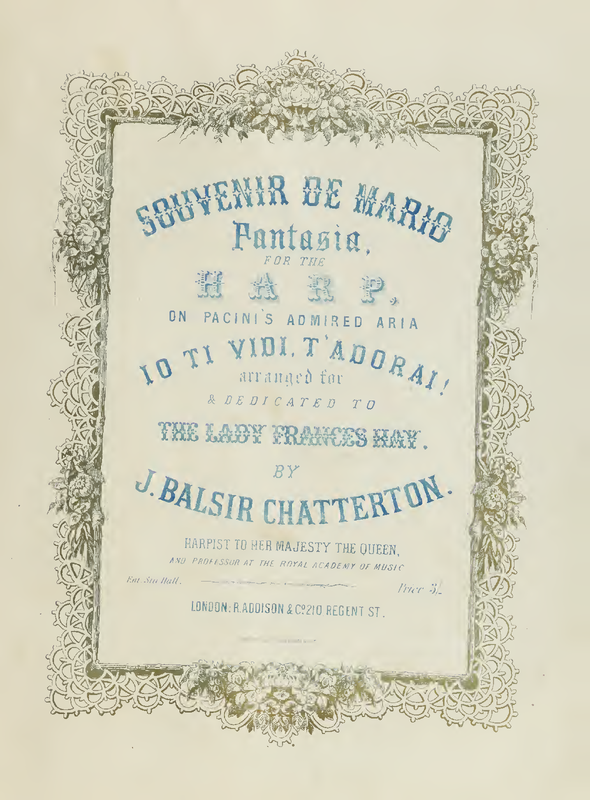 SOUVENIR DE MARIO
Fantasia,
FOR THE
HARP,
ON PACINI'S ADMIRED ARIA
IO TI VIDI, T'ADORAI!
arranged for
& DEDICATED TO
THE LADY FRANCES HAY.
BY
J. BALSIR CHATTERTON.
HARPIST TO HER MAJESTY THE QUEEN,
AND PROFESSOR AT THE ROYAL ACADEMY OF MUSIC
Ent. Sta. Hall.
Price 3/-
LONDON: R. ADDISON & Co. 210 REGENT ST.